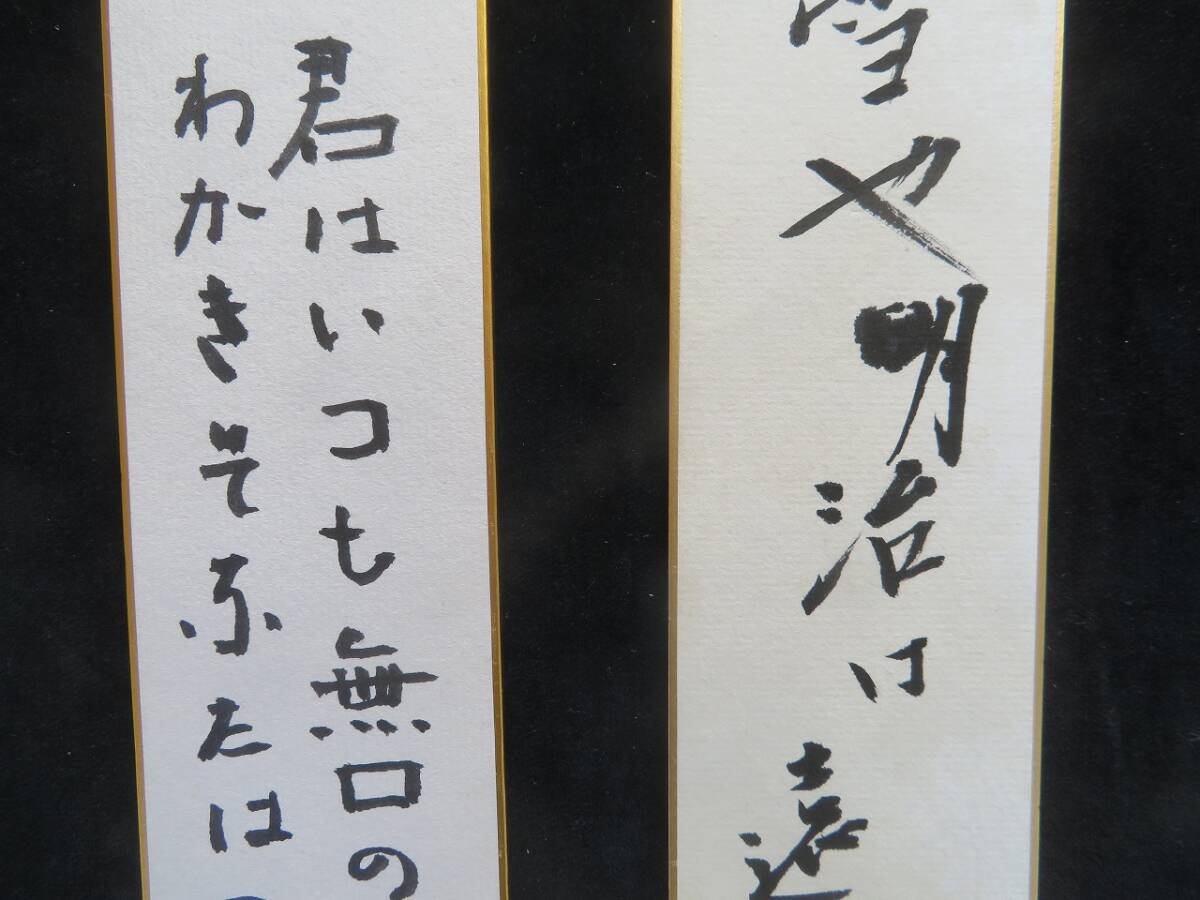 雪や明治は遠
君はいつも無口の
わかきそふたは